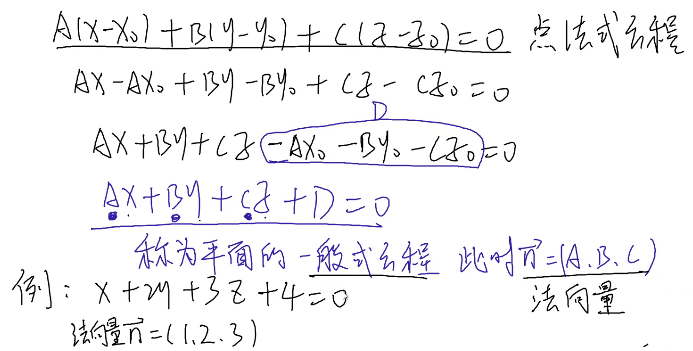 A(x-x₀)+B(y-y₀)+C(z-z₀)=0 点法式方程
Ax-Ax₀+By-By₀+Cz-Cz₀=0
D
Ax+By+Cz-Ax₀-By₀-Cz₀=0
Ax+By+Cz+D=0
称为平面的一般式方程 此时n⃗=(A.B.C)
例: x+2y+3z+4=0 法向量
法向量n⃗=(1.2.3)